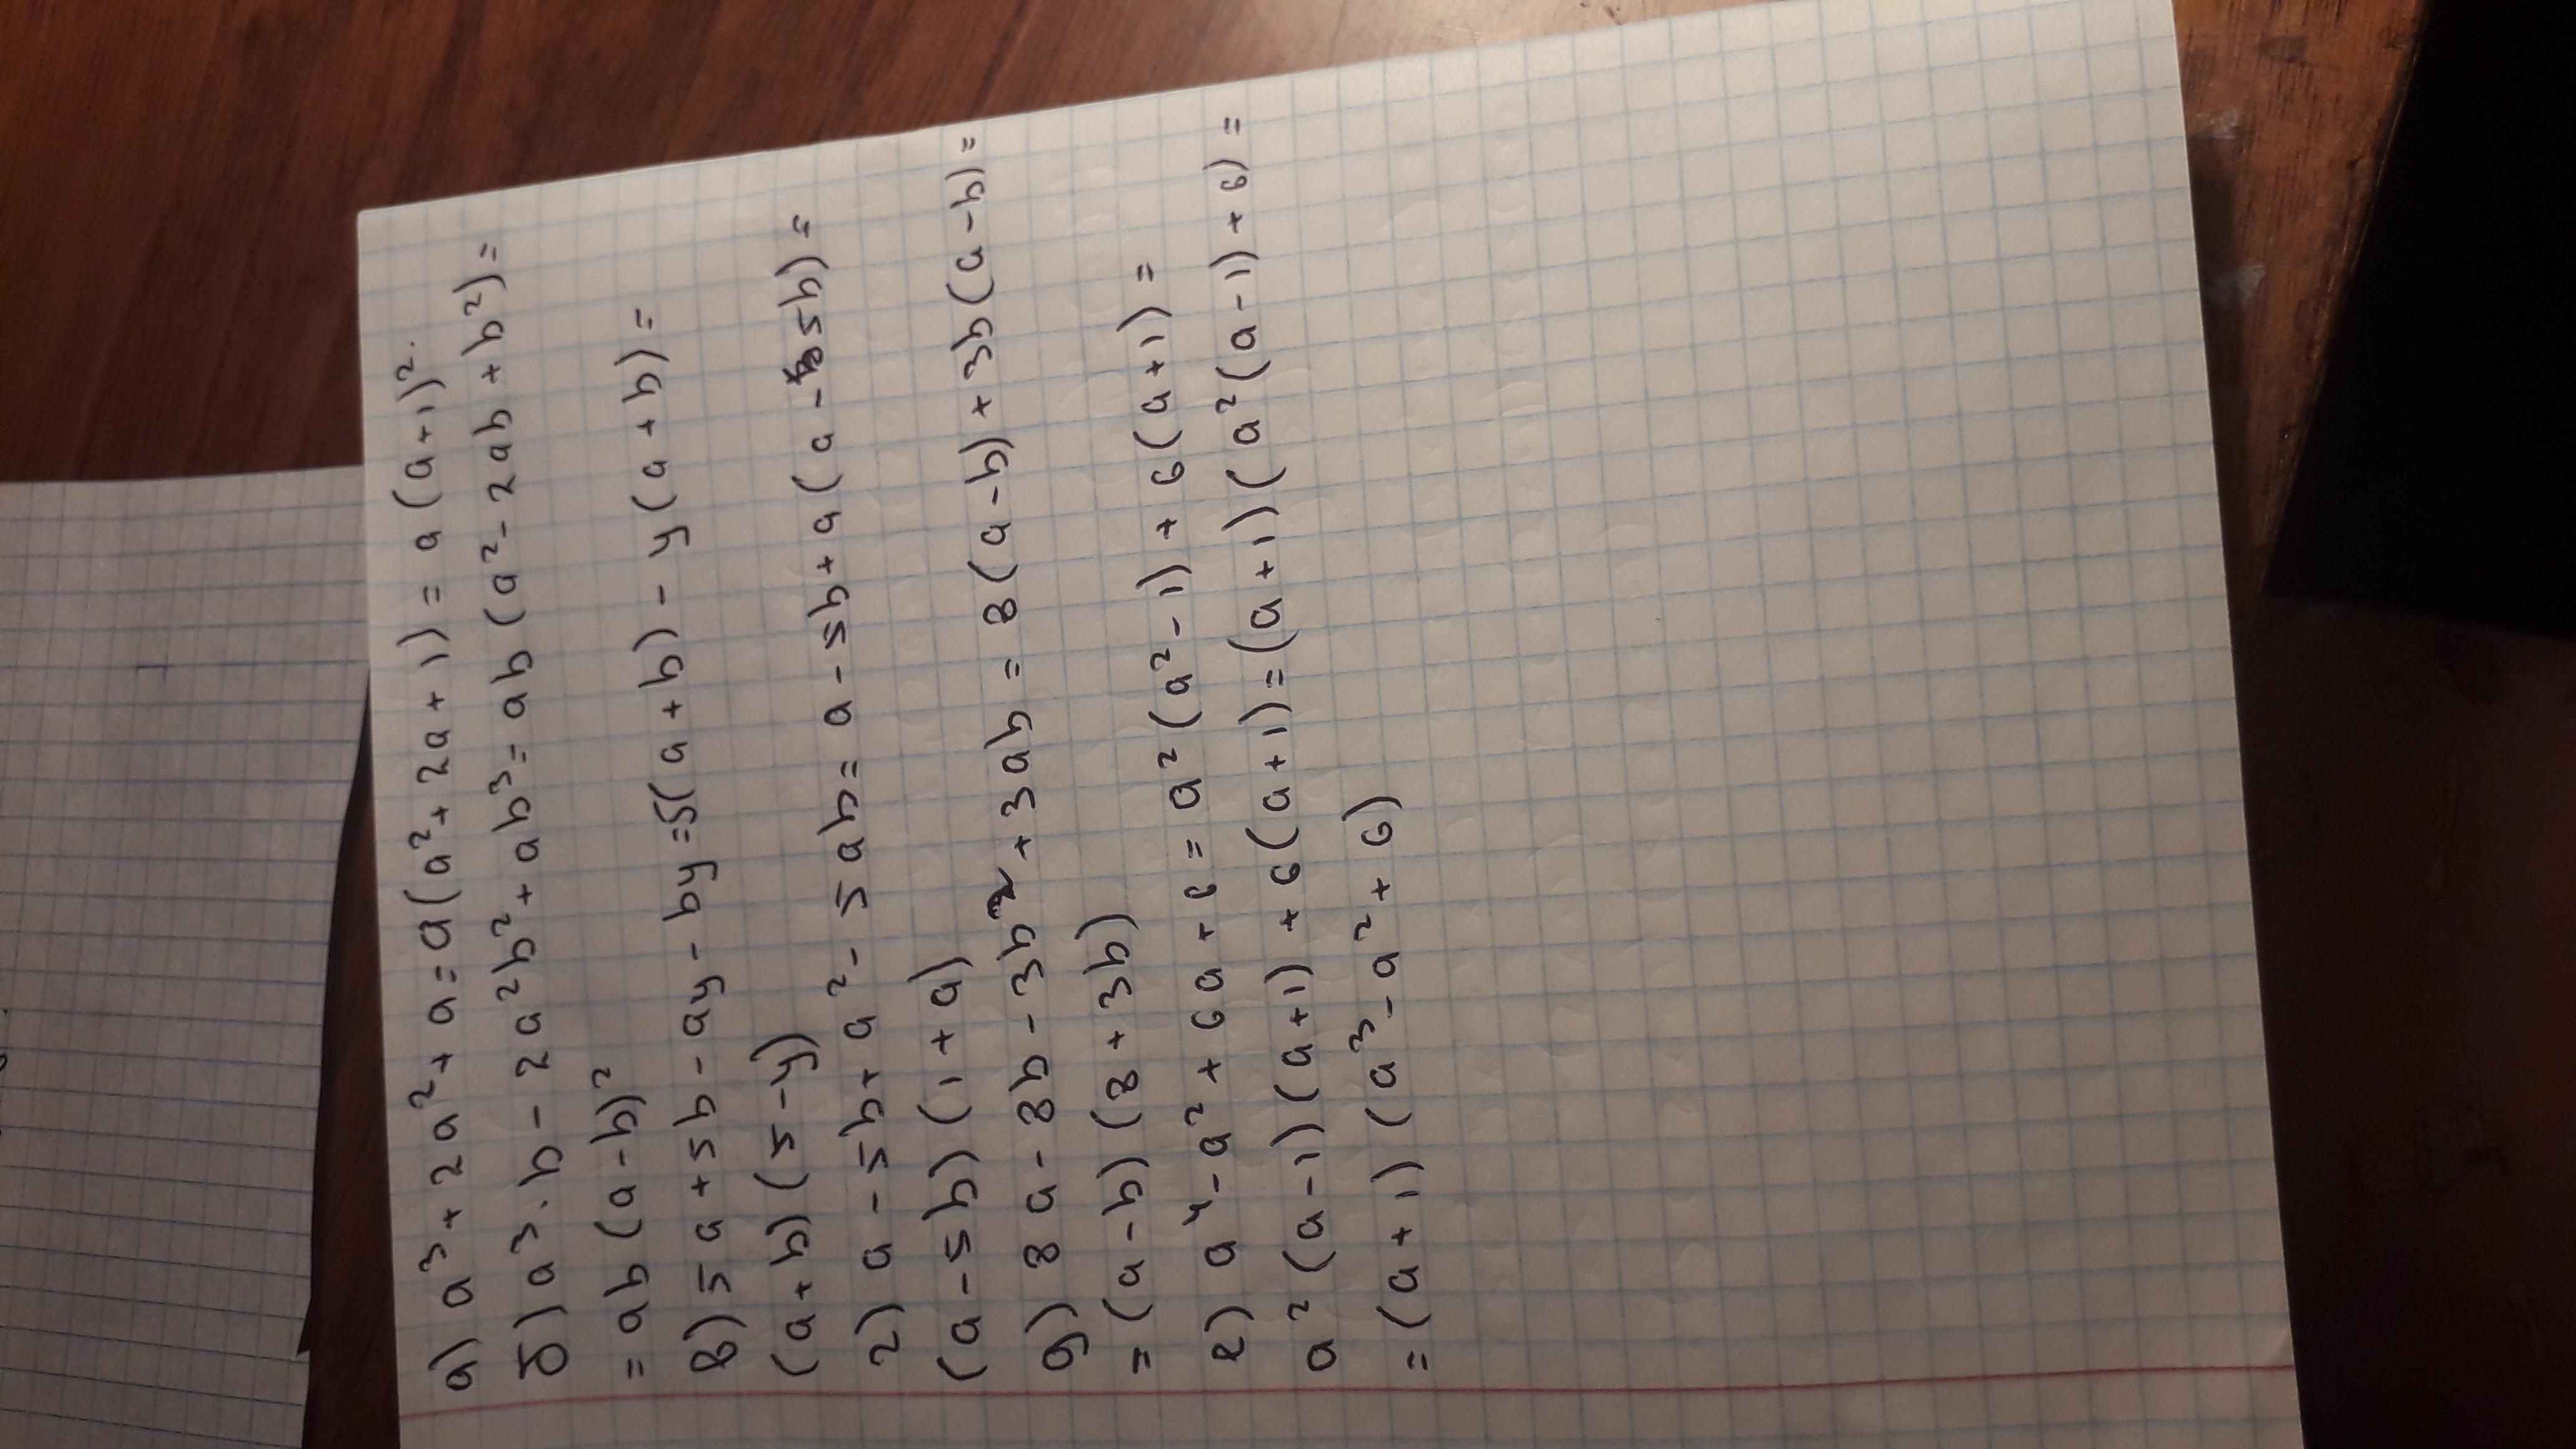 а) a³ + 2a² + a = a(a² + 2a + 1) = a(a+1)².
б) a³·b - 2a²b² + ab³ = ab(a² - 2ab + b²) =
= ab(a-b)²
в) 5a + 5b - ay - by = 5(a+b) - y(a+b) =
(a+b)(5-y)
г) a - 5b + a² - 5ab = a - 5b + a(a - 5b) =
(a-5b)(1+a)
д) 8a - 8b - 3b² + 3ab = 8(a-b) + 3b(a-b) =
= (a-b)(8+3b)
е) a⁴ - a² + 6a + 6 = a²(a²-1) + 6(a+1) =
a²(a-1)(a+1) + 6(a+1) = (a+1)(a²(a-1)+6) =
= (a+1)(a³ - a² + 6)